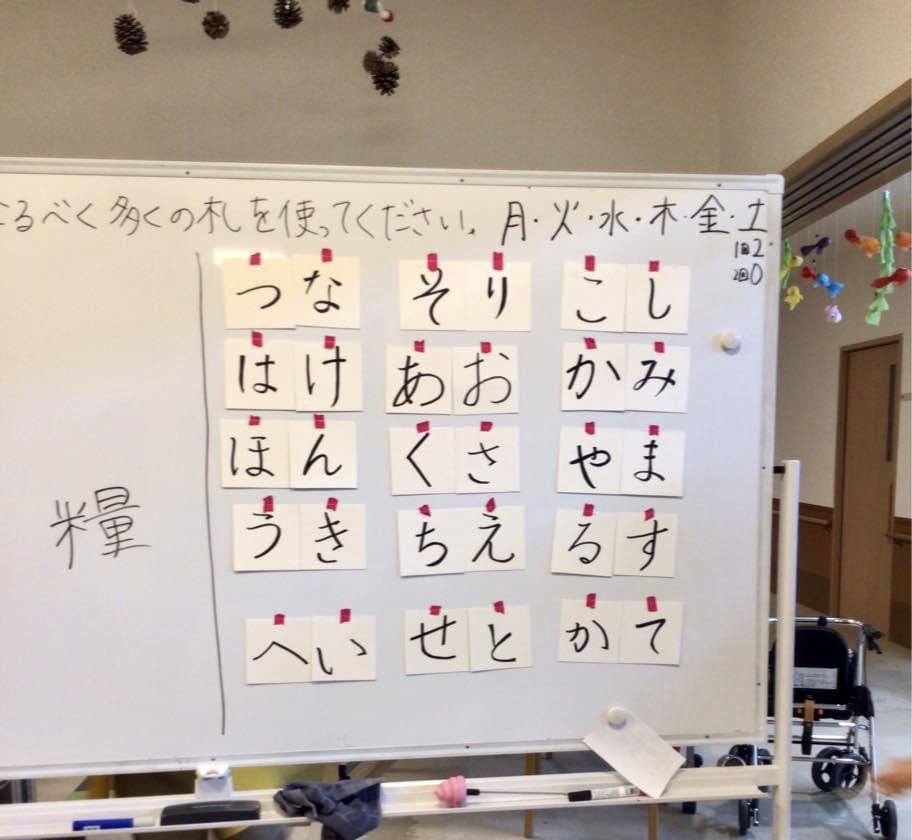 るべく多くの札を使ってください。月・火・水・木・金・土
1回2
2回0
つな そり こし
はけ あお かみ
ほん くさ やま
うき ちえ るす
糧
へい せと かて